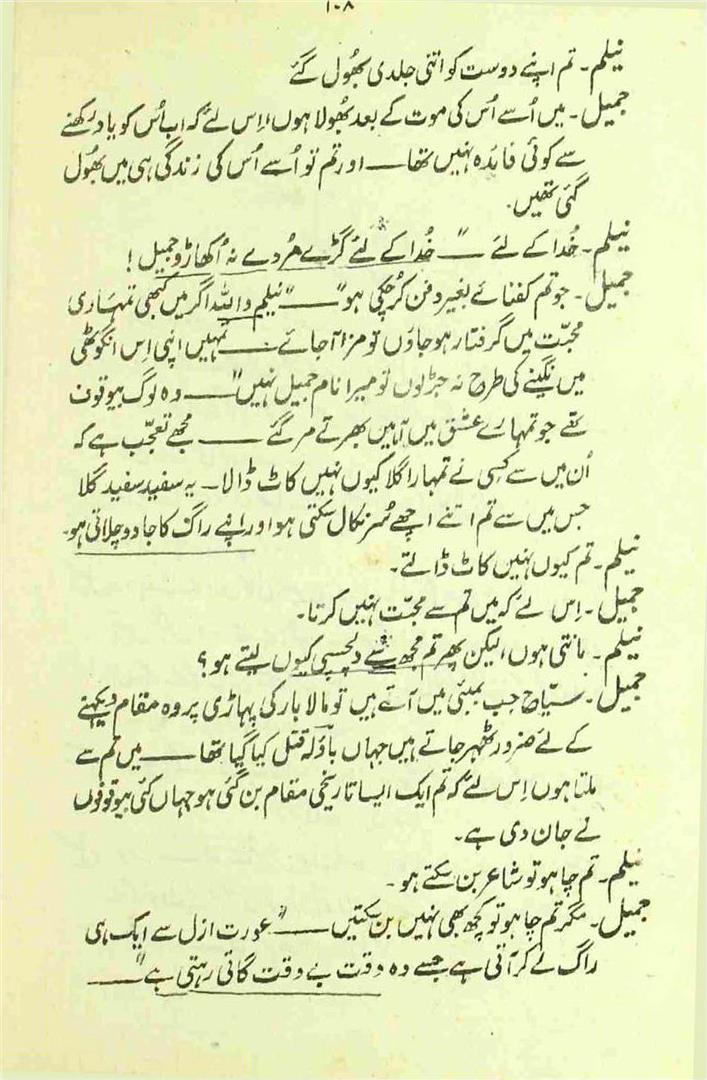 ۱۰۸
نیلم۔ تم اپنے دوست کو اتنی جلدی بھُول گئے
جمیل۔ میں اُسے اُس کی موت کے بعد بھُولا ہوں، اِس لئے کہ اب اُس کو یاد رکھنے
سے کوئی فائدہ نہیں تھا ــــ اور تم تو اُسے اُس کی زندگی ہی میں بھُول
گئی تھیں۔
نیلم۔ خُدا کے لئے ــــ "خُدا کے لئے گڑے مُردے نہ اُکھاڑو جمیل!
جمیل۔ جو تم کفنائے بغیر دفن کر چکی ہو" ــــ "نیلم واللہ اگر میں کبھی تمہاری
محبّت میں گرفتار ہو جاؤں تو مزا آ جائے ــــ تمہیں اپنی اِس انگوٹھی
میں نگینے کی طرح نہ جڑ لوں تو میرا نام جمیل نہیں" ــــ وہ لوگ بیوقوف
تھے جو تمہارے عشق میں آہیں بھرتے مر گئے ــــ مجھے تعجّب ہے کہ
اُن میں سے کسِی نے تمہارا گلا کیوں نہیں کاٹ ڈالا۔ یہ سفید سفید گلا
جس میں سے تم اتنے اچھے سُر نکال سکتی ہو اور اپنے راگ کا جادو چلاتی ہو۔
نیلم۔ تم کیوں نہیں کاٹ ڈالتے۔
جمیل۔ اِس لئے کہ میں تم سے محبّت نہیں کرتا۔
نیلم۔ مانتی ہوں! لیکن پھر تم مجھ سے دلچسپی کیوں لیتے ہو؟
جمیل۔ سیّاح جب بمبئی میں آتے ہیں تو مالابار کی پہاڑی پر وہ مقام دیکھنے
کے لئے ضرور ٹھہر جاتے ہیں جہاں باؤلہ قتل کیا گیا تھا ــــ میں تم سے
ملتا ہوں اِس لئے کہ تم ایک ایسا تاریخی مقام بن گئی ہو جہاں کئی بیوقوفوں
نے جان دی ہے۔
نیلم۔ تم چاہو تو شاعر بن سکتے ہو۔
جمیل۔ مگر تم چاہو تو کچھ بھی نہیں بن سکتیں ــــ "عورت ازل سے ایک ہی
راگ لے کر آتی ہے جسے وہ وقت بے وقت گاتی رہتی ہے" ــــ